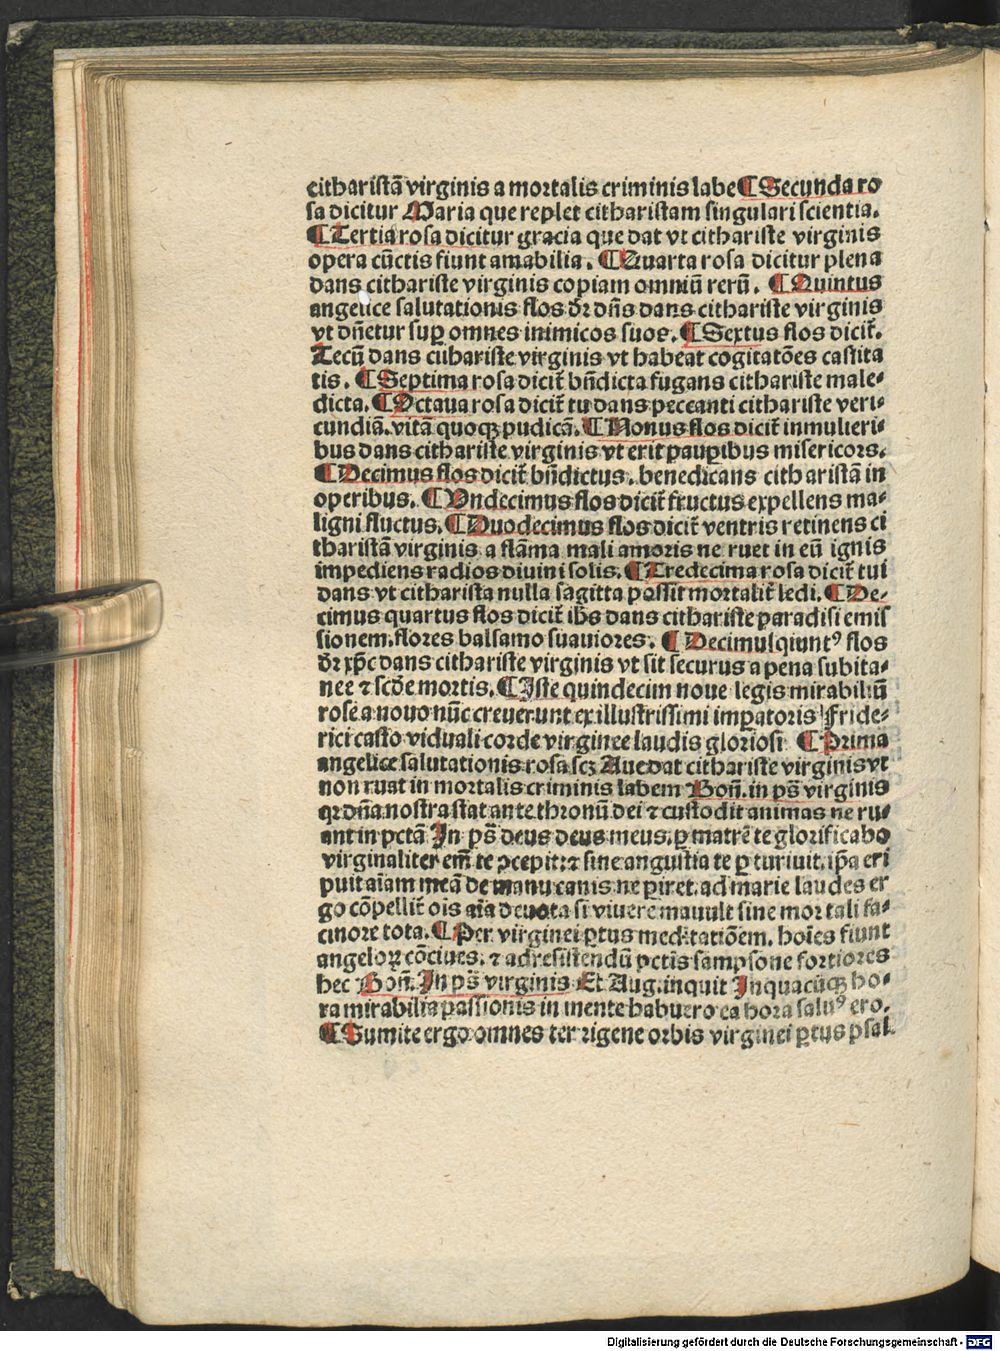 citharistā virginis a mortalis criminis labe ¶ Secunda ro
sa dicitur Maria que replet citharistam singulari scientia.
¶ Tertia rosa dicitur gracia que dat vt cithariste virginis
opera cūctis fiunt amabilia. ¶ Quarta rosa dicitur plena
dans cithariste virginis copiam omniū rerū. ¶ Quintus
angelice salutationis flos dr̄ dn̄s dans cithariste virginis
vt dn̄etur suꝑ omnes inimicos suos. ¶ Sextus flos dicit̄.
Tecū dans cithariste virginis vt habeat cogitatōes castita
tis. ¶ Septima rosa dicit̄ bn̄dicta fugans cithariste male-
dicta. ¶ Octaua rosa dicit̄ tu dans peccanti cithariste veri-
cundiā. vitā quoqꝫ pudicā. ¶ Nonus flos dicit̄ in mulieri-
bus dans cithariste virginis vt erit pauꝑibus misericors.
¶ Decimus flos dicit̄ bn̄dictus. benedicans citharistā in
operibus. ¶ Vndecimus flos dicit̄ fructus expellens ma-
ligni fluctus. ¶ Duodecimus flos dicit̄ ventris retinens ci
tharistā virginis a flāma mali amoris ne ruet in eū ignis
impediens radios diuini solis. ¶ Tredecima rosa dicit̄ tui
dans vt citharista nulla sagitta possit mortalit̄ ledi. ¶ De-
cimus quartus flos dicit̄ ihs dans cithariste paradisi emis
sionem. flores balsamo suauiores. ¶ Decimusqiuntꝰ flos
dr̄ xp̄c dans cithariste virginis vt sit securus a pena subita-
nee ⁊ scd̄e mortis. ¶ Iste quindecim noue legis mirabiliū
rose a nouo nūc creuerunt ex illustrissimi imꝑatoris Fride-
rici casto viduali corde virginee laudis gloriosi ¶ Prima
angelice salutationis rosa scꝫ Aue dat cithariste virginis vt
non ruat in mortalis criminis labem Bon̄. in ps̄ virginis
qꝛ dn̄a nostra stat ante thronū dei ⁊ custodit animas ne ru-
ant in pctā In ps̄ deus deus meus. ꝑ matrē te glorificabo
virginaliter em̄ te ꝯcepit: ⁊ sine angustia te ꝑturiuit. ip̄a eri
puit aīam meā de manu canis ne ꝑiret. ad marie laudes er
go cōpellit̄ oīs aīa deuota si viuere mauult sine mortali fa-
cinore tota. ¶ Per virginei ꝑtus meditatiōem. hoīes fiunt
angeloꝝ cōciues. ⁊ ad resistendū pctīs sampsone fortiores
hec Bon̄. In ps̄ virginis Et Aug. inquit In quacūqꝫ ho-
ra mirabilia passionis in mente habuero ea hora saluꝰ ero.
¶ Sumite ergo omnes terrigene orbis virginei ꝑtus psal.
Digitalisierung gefördert durch die Deutsche Forschungsgemeinschaft - DFG